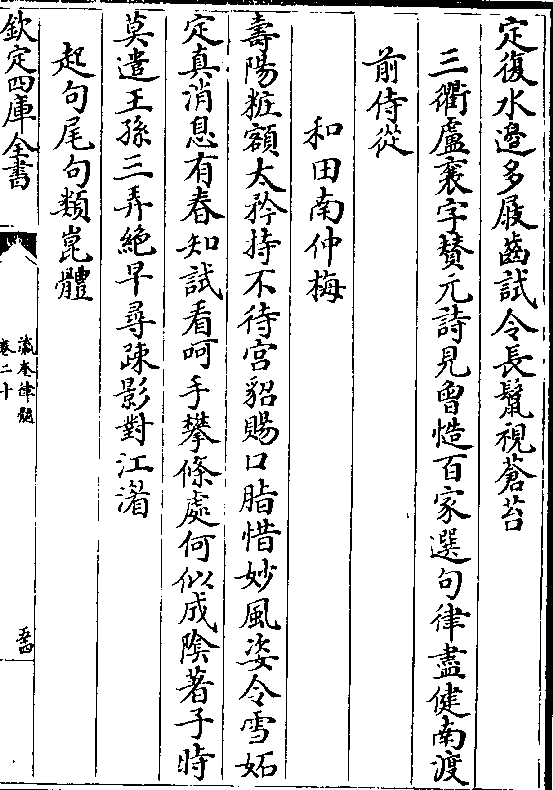 定復水邉多屐齒試令長鬛視蒼苔
三衢盧襄字賛元詩見曾慥百家選句律盡健南渡
前侍從
和田南仲梅
壽陽粧額太矜持不待宫貂賜口脂惜妙風姿令雪妬
定真消息有春知試看呵手攀條處何似成隂著子時
莫遣王孫三弄絶早尋疎影對江湄
起句尾句類崑體
欽定四庫全書
瀛奎律髓
卷二十